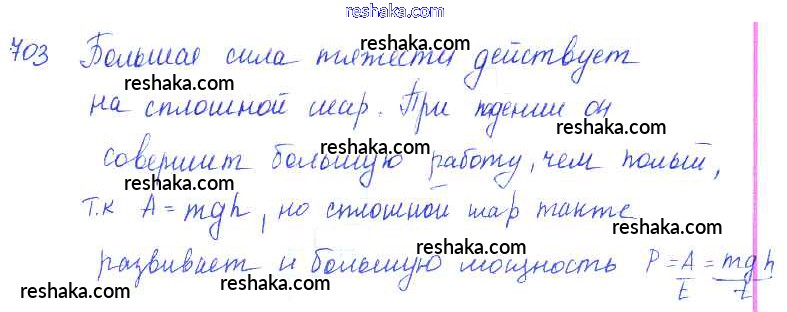 reshaka.com
703 Большая сила тяжести действует
reshaka.com
reshaka.com
на сплошной шар. При падении он
reshaka.com
reshaka.com
reshaka.com
совершит большую работу, чем полый,
reshaka.com
reshaka.com
т.к A = mgh, но сплошной шар также
reshaka.com
reshaka.com
развивает и большую мощность P = A/t = mgh/t
reshaka.com
reshaka.com
reshaka.com